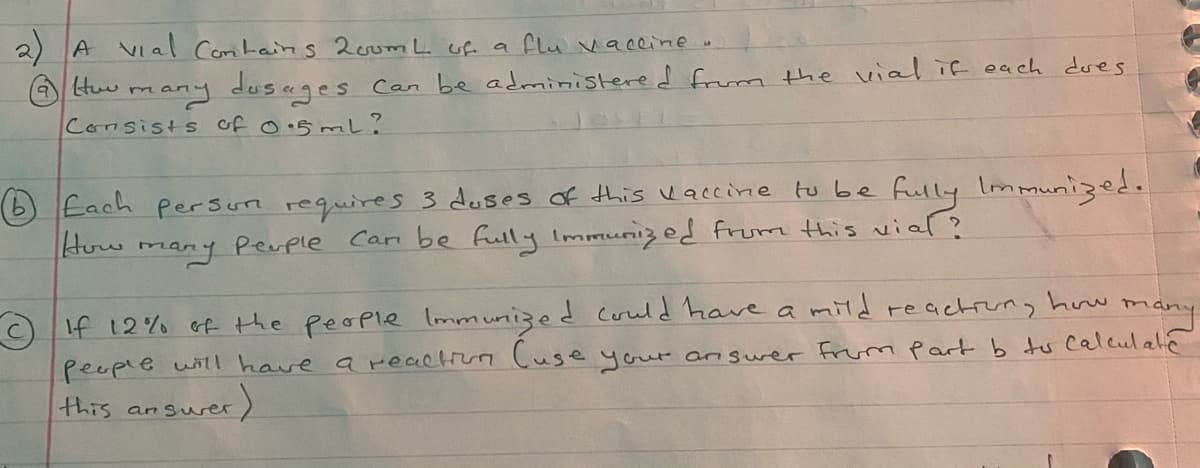 2) A vial Contains 200mL of a flu vaccine.
(a) How many dosages can be administered from the vial if each does
Consists of 0.5mL?
(b) Each person requires 3 doses of this vaccine to be fully Immunized.
How many people can be fully immunized from this vial?
(c) If 12% of the people Immunized could have a mild reaction, how many
people will have a reaction (use your answer from part b to calculate
this answer)